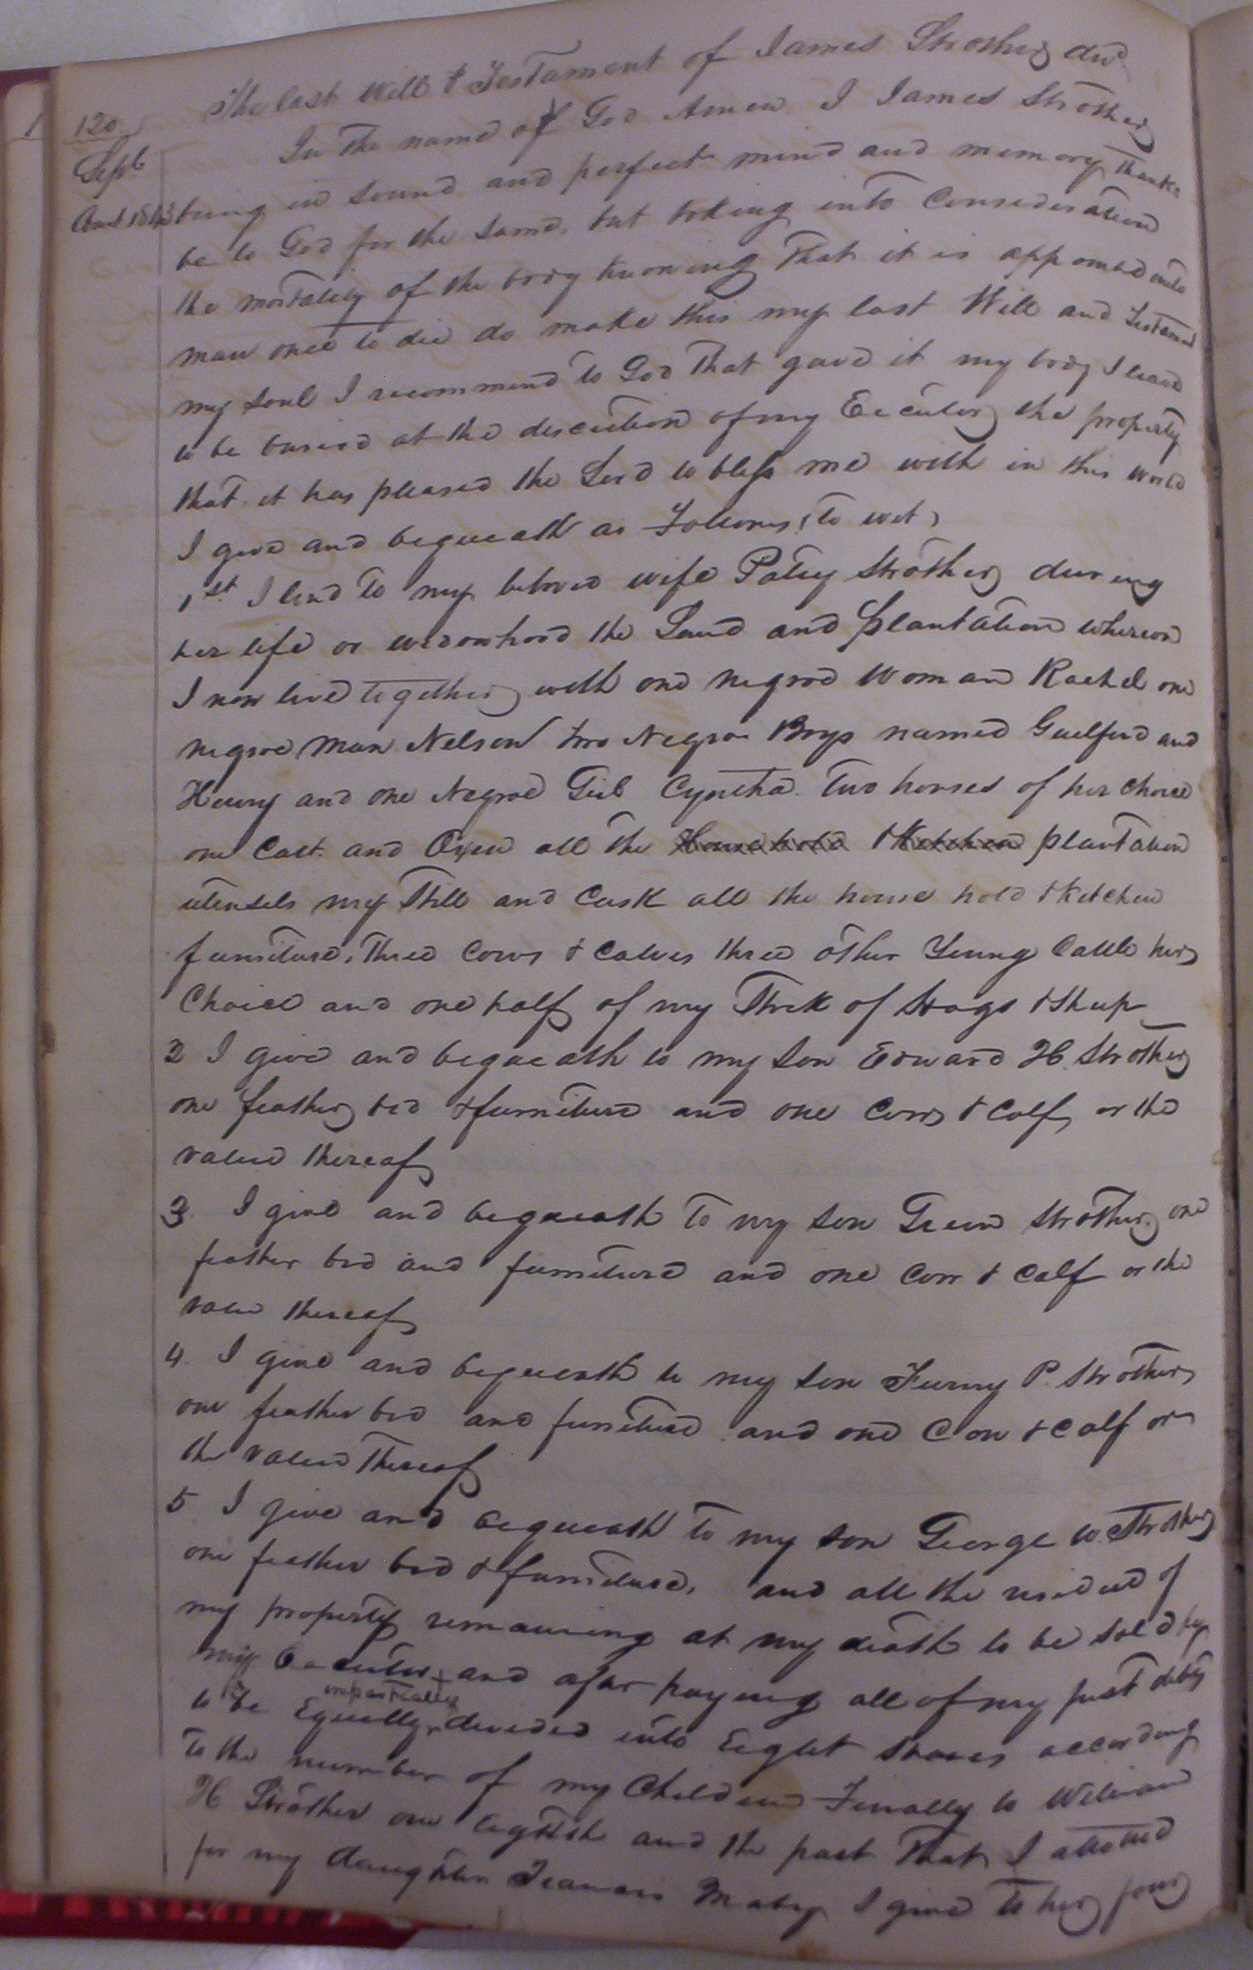 The last Will & Testament of James Strother decd
120
Sept
Court 1843
In the name of God Amen I James Strother
being in sound and perfect mind and memory thanks
be to God for the same, but taking into Consideration
the mortality of the body knowing that it is appointed unto
man once to die do make this my last Will and Testament
my soul I recommend to God that gave it my body I leave
to be buried at the discretion of my Executor the property
that it has pleased the Lord to bless me with in this world
I give and bequeath as Follows, (to wit,
1st I lend to my beloved wife Patsy Strother during
her life or widowhood the Land and plantation whereon
I now live together with one negroe Woman Rachel one
negroe Man Nelson two Negroe Boys named Guilford and
Henry and one Negroe Girl Cyntha. two horses of her choice
one Cart and Oxen all the House hold & Kitchen plantation
utensels my Still and Cask all the house hold & Kitchen
furniture, three Cows & Calves three other Young Cattle her
Choice and one half of my Stock of Hogs & Sheep
2 I give and bequeath to my Son Edward H. Strother
one feather bed & furniture and one Cow & Calf or the
value thereof
3 I give and bequeath to my Son Green Strother one
feather bed and furniture and one Cow & Calf or the
value thereof
4. I give and bequeath to my Son Furny P. Strother
one feather bed and furniture and one Cow & Calf or
the value thereof
5 I give and bequeath to my Son George W Strother
one feather bed & furniture, and all the residue of
my property remaining at my death to be sold by
my Executor and after paying all of my just debts
to be Equelly impartially devided into Eight Shares according
to the number of my Children Finally to William
H Strother one Eighth and the part that I allotted
for my daughter Frances Mabry I give to her four